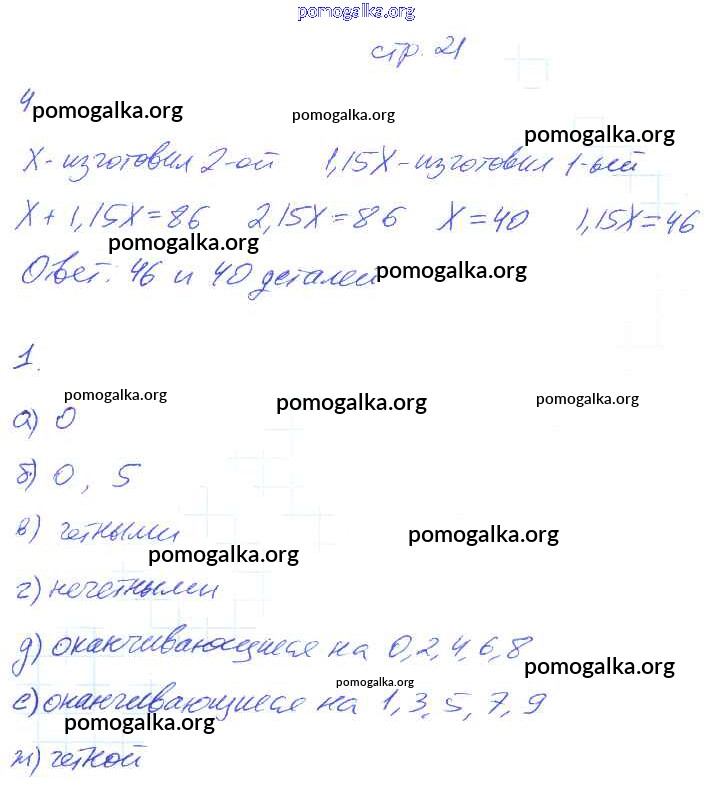 pomogalka.org
стр. 21
4
pomogalka.org pomogalka.org pomogalka.org
X - изготовил 2-ой 1,15X - изготовил 1-ый
X + 1,15X = 86 2,15X = 86 X = 40 1,15X = 46
pomogalka.org
Ответ: 46 и 40 деталей
pomogalka.org
1.
pomogalka.org pomogalka.org pomogalka.org
а) 0
б) 0, 5
в) четными
pomogalka.org pomogalka.org
г) нечетными
д) оканчивающиеся на 0, 2, 4, 6, 8
pomogalka.org
pomogalka.org
е) оканчивающиеся на 1, 3, 5, 7, 9
pomogalka.org
ж) четной